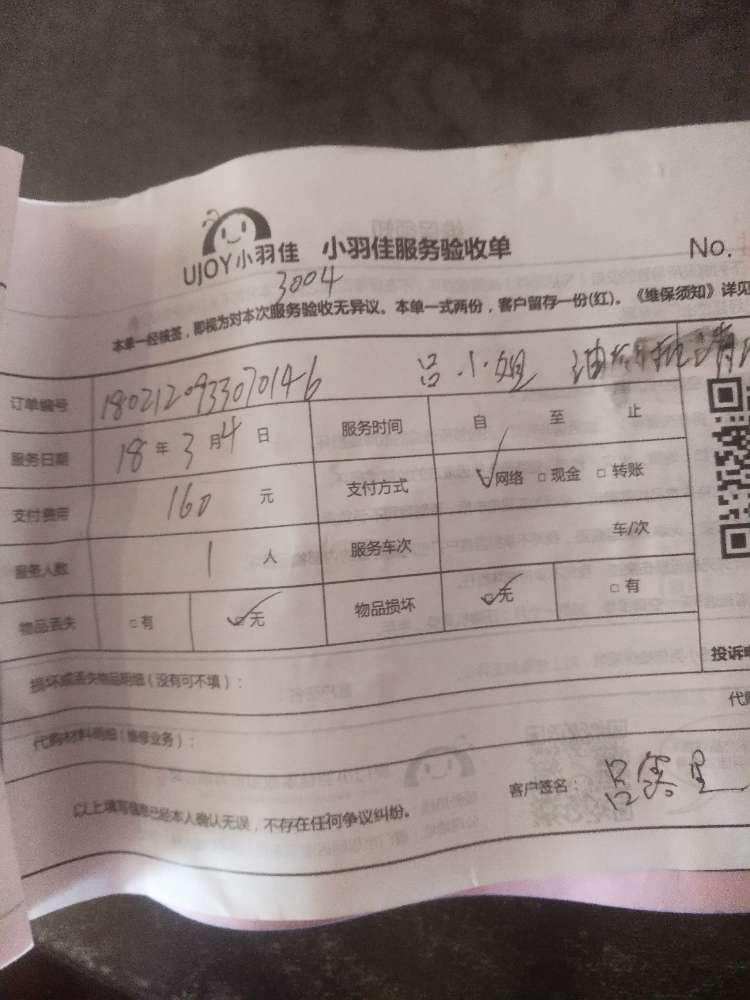 UJOY小羽佳 小羽佳服务验收单 No.
3004
本单一经核签，即视为对本次服务验收无异议。本单一式两份，客户留存一份(红)。《维保须知》详见
订单编号 1802120933070146 吕小姐 油烟机清
服务日期 18年3月4日 服务时间 自 至 止
支付费用 160 元 支付方式 网络 现金 转账
服务人数 1 人 服务车次 车/次
物品丢失 有 无 物品损坏 无 有
损坏或丢失物品明细（没有可不填）：
投诉电
代购材料明细（维修业务）：
代购
以上填写信息已经本人确认无误，不存在任何争议纠纷。 客户签名：吕